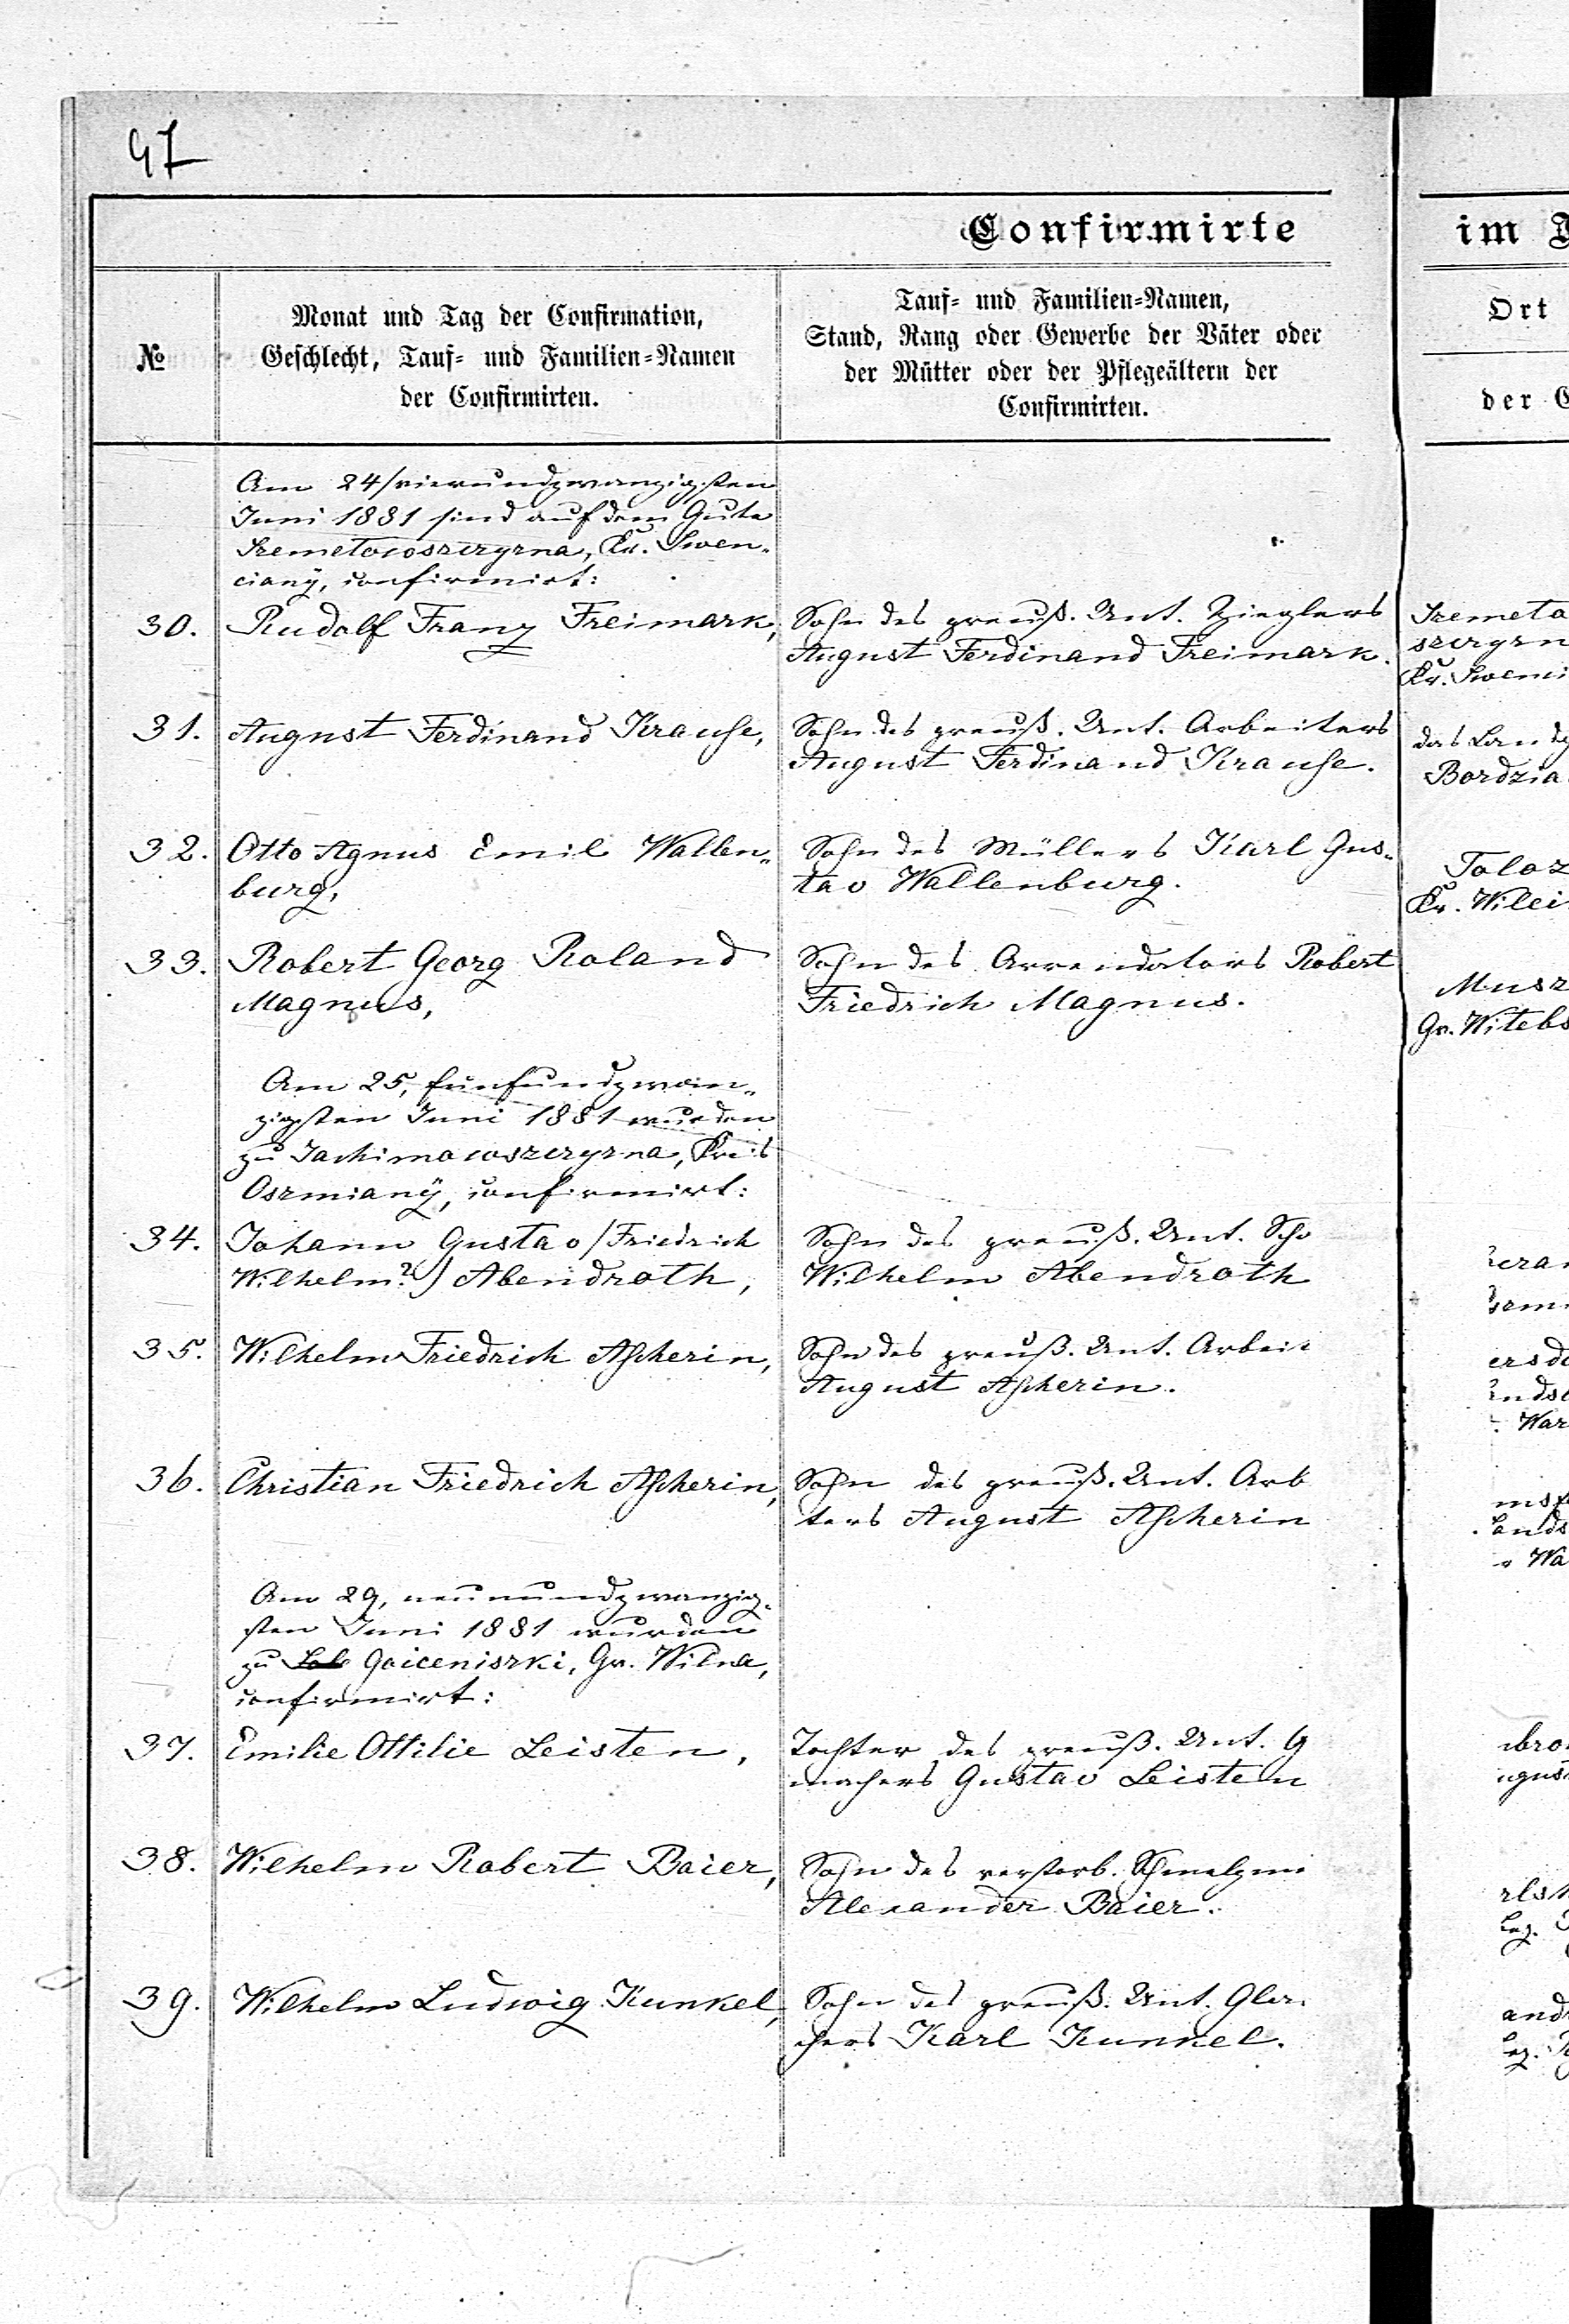 47
Confirmirte
im
№
Monat und Tag der Confirmation,
Geschlecht, Tauf- und Familien-Namen
der Confirmirten.
Tauf- und Familien-Namen,
Stand, Rang oder Gewerbe der Väter oder
der Mütter oder der Pflegeältern der
Confirmirten.
Ort
der
Am 24/vierundzwanzigsten
Juni 1881 sind auf dem Gute
Szemetowoszczyzna, Kr. Swen-
ciany, confirmirt:
30.
Rudolf Franz Freimark,
Sohn des preuß. Unt. Zieglers
August Ferdinand Freimark.
Szemeto
szczyzn
Kr. Swenci
31.
August Ferdinand Krause,
Sohn des preuß. Unt. Arbeiters
August Ferdinand Krause.
das Landg
Bordzia
32.
Otto Agnus Emil Wallen-
burg,
Sohn des Müllers Karl Gus-
tav Wallenburg.
Toloz
Kr. Wilei
33.
Robert Georg Roland
Magnus,
Sohn des Arrendators Robert
Friedrich Magnus.
Musz
Gv. Witebs
Am 25, fünfundzwan-
zigsten Juni 1881 wurden
zu Jachimowoszczyzna, Kreis
Oszmiany, confirmirt:
34.
Johann Gustav/Friedrich
Wilhelm?) Abendroth,
Sohn des preuß. Unt. Sch
Wilhelm Abendroth
35.
Wilhelm Friedrich Ascherin,
Sohn des preuß. Unt. Arbei
August Ascherin.
ersdo
War
36.
Christian Friedrich Ascherin,
Sohn des preuß. Unt. Arb
ters August Ascherin
lands
Wa
Am 29, neunundzwanzig-
sten Juni 1881 wurden
zu Gaiceniszki, Gv. Wilna,
confirmirt:
37.
Emilie Ottilie Leisten,
Tochter des preuß. Unt. G
machers Gustav Leisten
38.
Wilhelm Robert Baier,
Sohn des verstorb. Schmelzm
Alexander Baier.
39.
Wilhelm Ludwig Kunkel,
Sohn des preuß. Unt. Gla
chers Karl Kunkel.